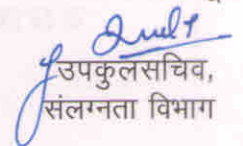 उपकुलसचिव,
संलग्नता विभाग